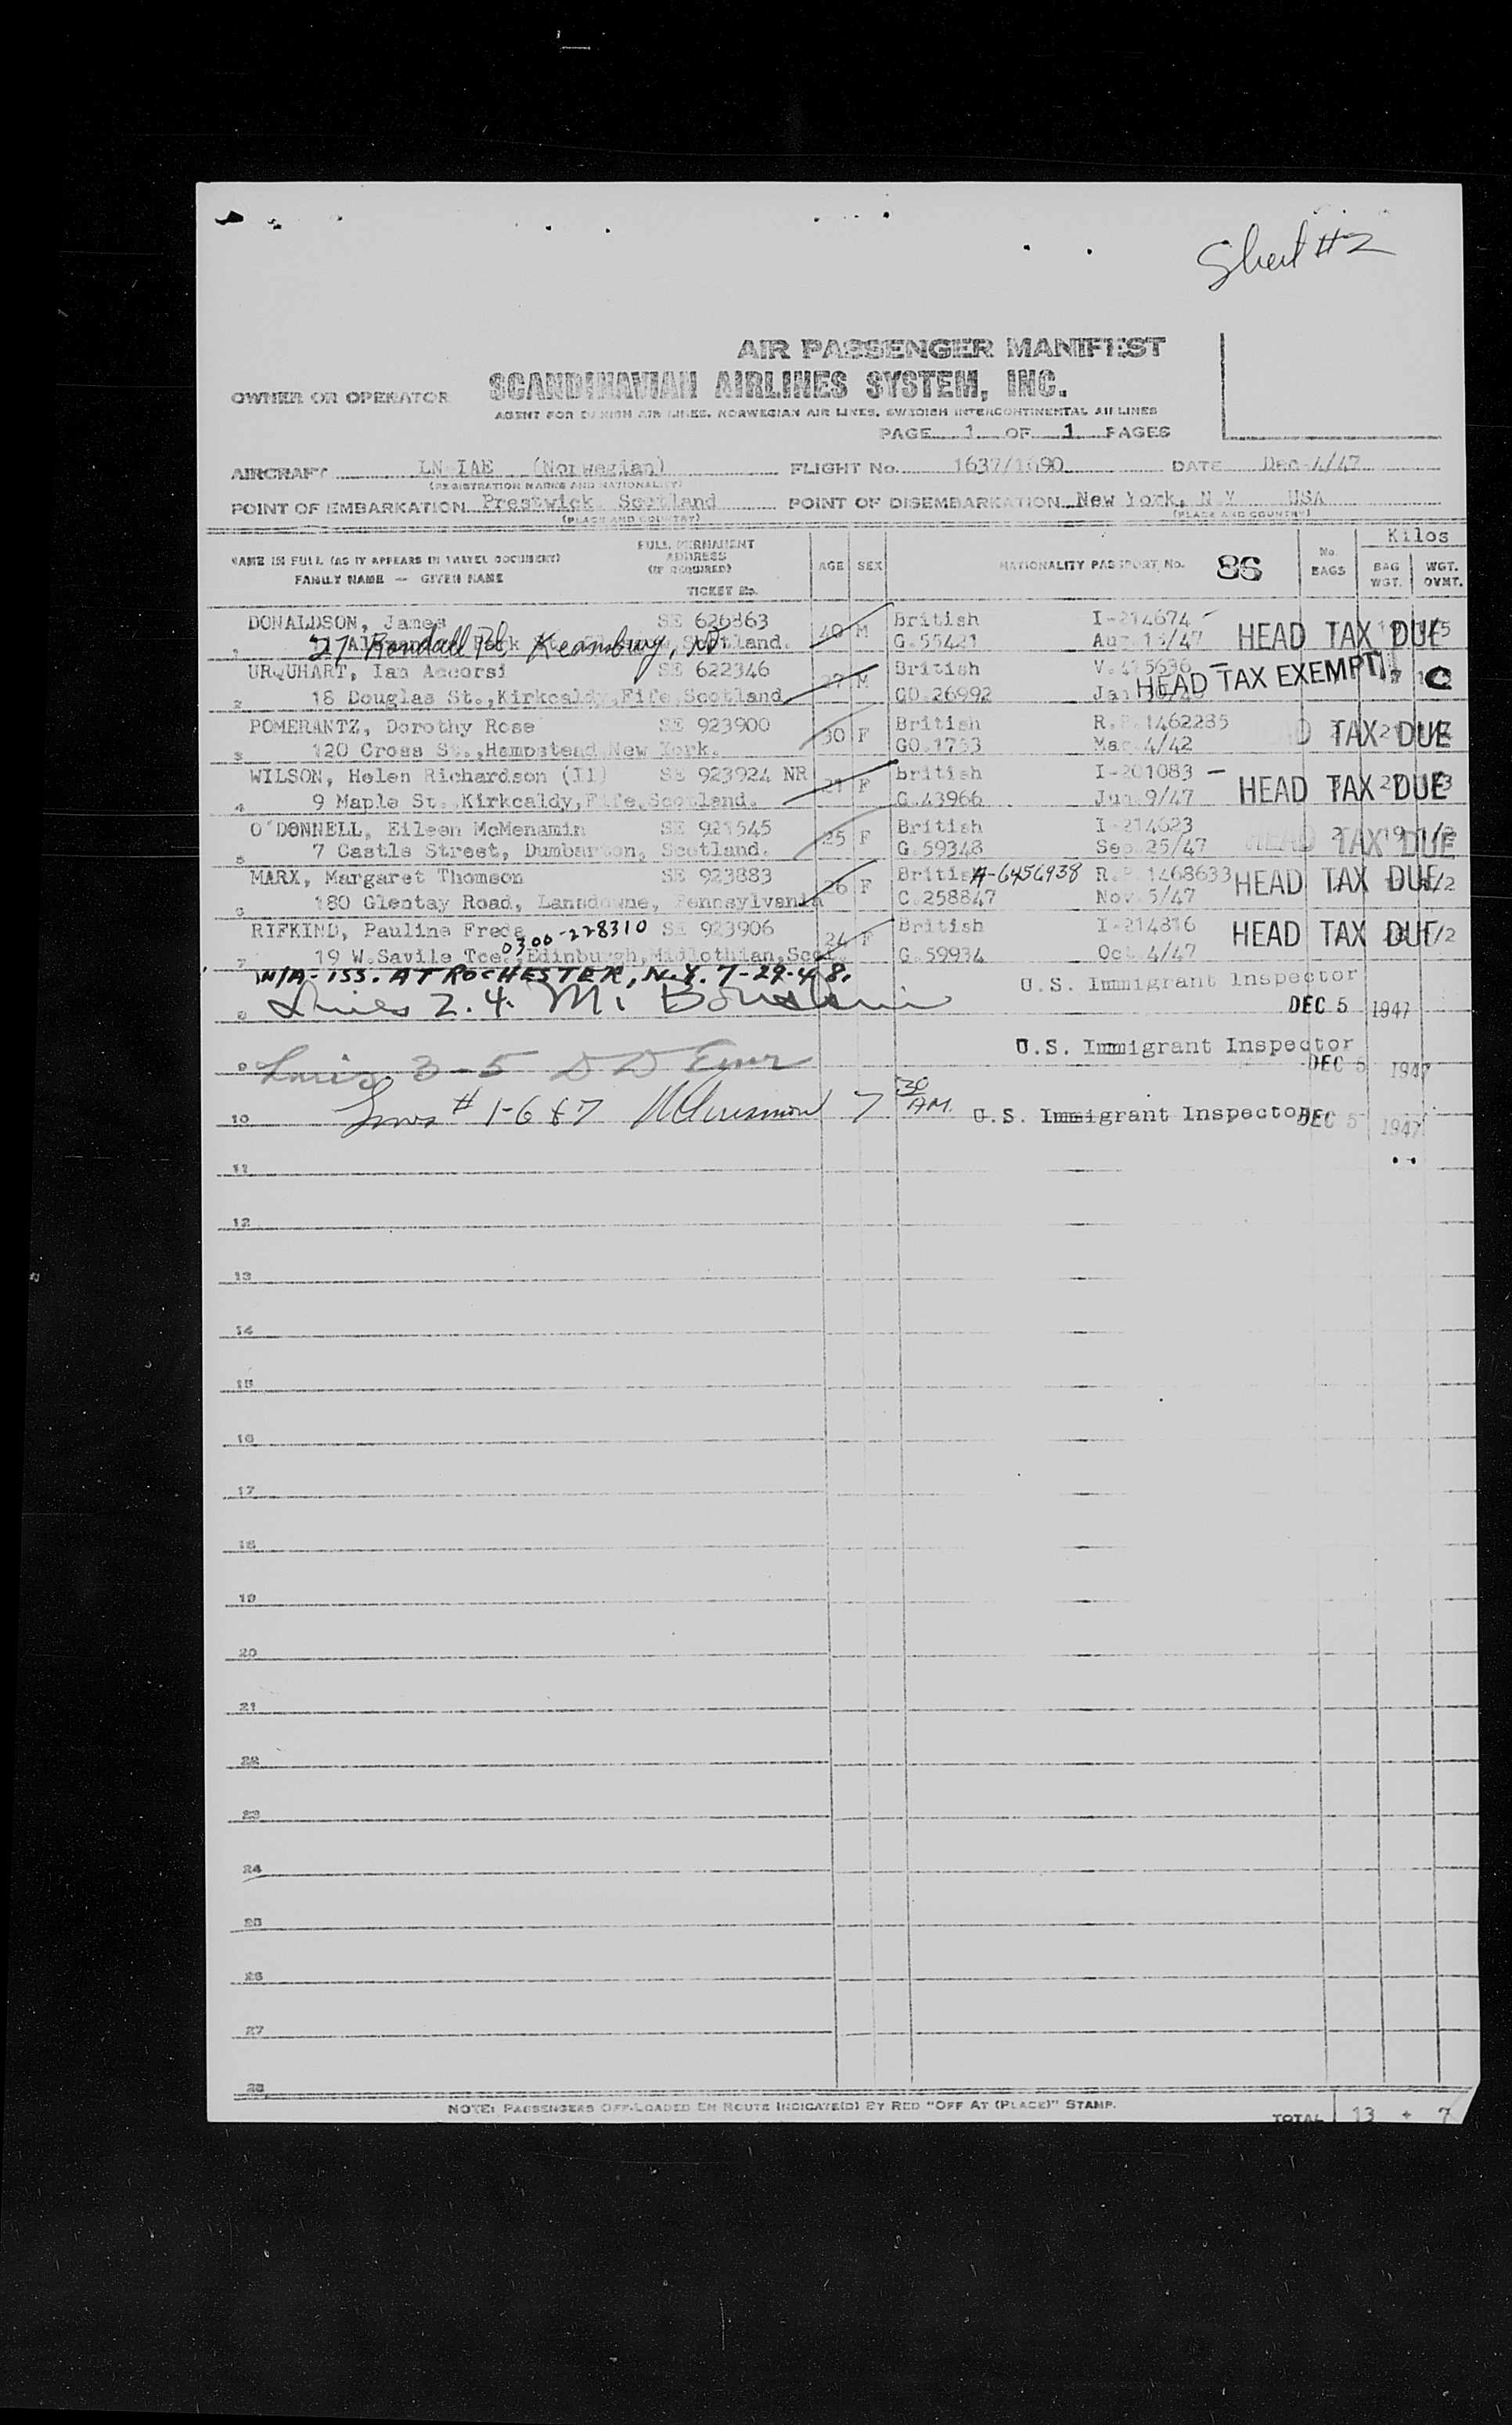 Sheet #2
AIR PASSENGER MANIFEST
OWNER OR OPERATOR SCANDINAVIAN AIRLINES SYSTEM, INC.
AGENT FOR DANISH AIR LINES, NORWEGIAN AIR LINES, SWEDISH INTERCONTINENTAL AIRLINES
PAGE 1 OF 1 PAGES
AIRCRAFT LN IAE (Norwegian) FLIGHT No. 1637/1690 DATE Dec 4/47
(REGISTRATION MARKS AND NATIONALITY)
POINT OF EMBARKATION Prestwick Scotland POINT OF DISEMBARKATION New York, N.Y. USA
(PLACE AND COUNTRY) (PLACE AND COUNTRY)
NAME IN FULL (AS IT APPEARS IN TRAVEL DOCUMENT) FAMILY NAME — GIVEN NAME
FULL PERMANENT ADDRESS (IF REQUIRED) TICKET No. AGE SEX NATIONALITY PASSPORT No. 86 No. BAGS Kilos BAG WGT. WGT. OVWT.
DONALDSON, James SE 626863 40 M British I-214674 -
1 27 Randall Pl. Keansburg, NJ Scotland. G.55421 Aug.15/47 HEAD TAX DUE
URQUHART, Ian Accorsi SE 622346 27 M British V.415636 -
2 18 Douglas St.,Kirkcaldy,Fife,Scotland GO.26992 Jan HEAD TAX EXEMPT
POMERANTZ, Dorothy Rose SE 923900 30 F British R.P.1462285
3 120 Cross St.,Hempstead,New York. GO.1753 Mar 4/42 TAX DUE
WILSON, Helen Richardson (II) SE 923924 NR 21 F British I-201083 -
4 9 Maple St.,Kirkcaldy,Fife,Scotland. G.43966 Jun 9/47 HEAD TAX DUE
O'DONNELL, Eileen McMenamin SE 921545 25 F British I-214623
5 7 Castle Street, Dumbarton, Scotland. G.59348 Sep 25/47 HEAD TAX DUE
MARX, Margaret Thomson SE 923883 26 F British A-6456938 R.P.1468633
6 180 Glentay Road, Lansdowne, Pennsylvania C.258847 Nov 5/47 HEAD TAX DUE
RIFKIND, Pauline Freda 0300-228310 SE 923906 24 F British I-214816
7 19 W.Savile Tce.,Edinburgh,Midlothian,Scot. G.59934 Oct 4/47 HEAD TAX DUE
N/A-ISS. AT ROCHESTER, N.Y. 7-29-48.
U.S. Immigrant Inspector
8 Lines 2.4. M. DEC 5 1947
U.S. Immigrant Inspector
9 Lines 3-5 DEC 5 1947
10 Lines # 1-6 & 7 7 30 AM. U.S. Immigrant Inspector DEC 5 1947
11
12
13
14
15
16
17
18
19
20
21
22
23
24
25
26
27
28
NOTE: PASSENGERS OFF-LOADED EN ROUTE INDICATE(D) BY RED "OFF AT (PLACE)" STAMP.
TOTAL 13 + 7